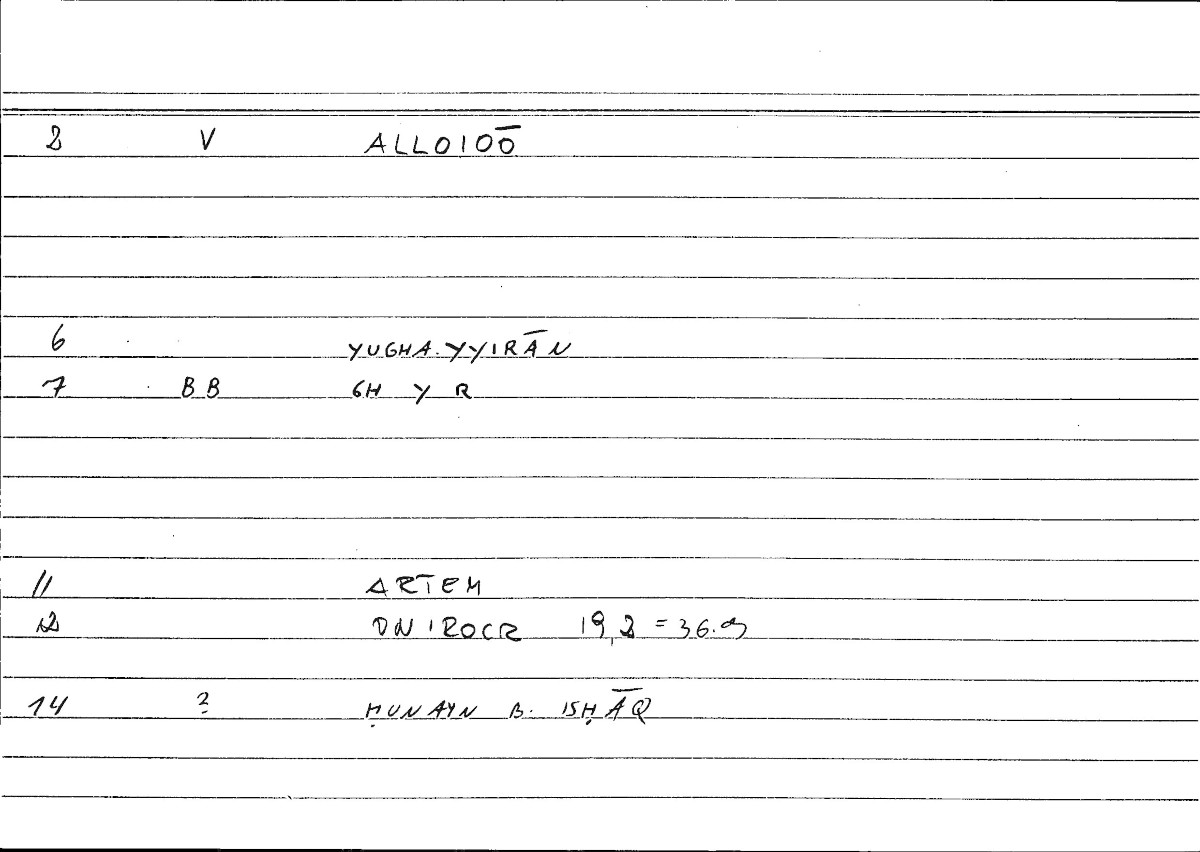 2 V ALLOIOŌ
6 YUGHA.YYIRĀN
7 BB GH Y R
11 ARTEM
12 ONIROCR 19,2 = 36.9
14 ? ḤUNAYN B. ISḤĀQ